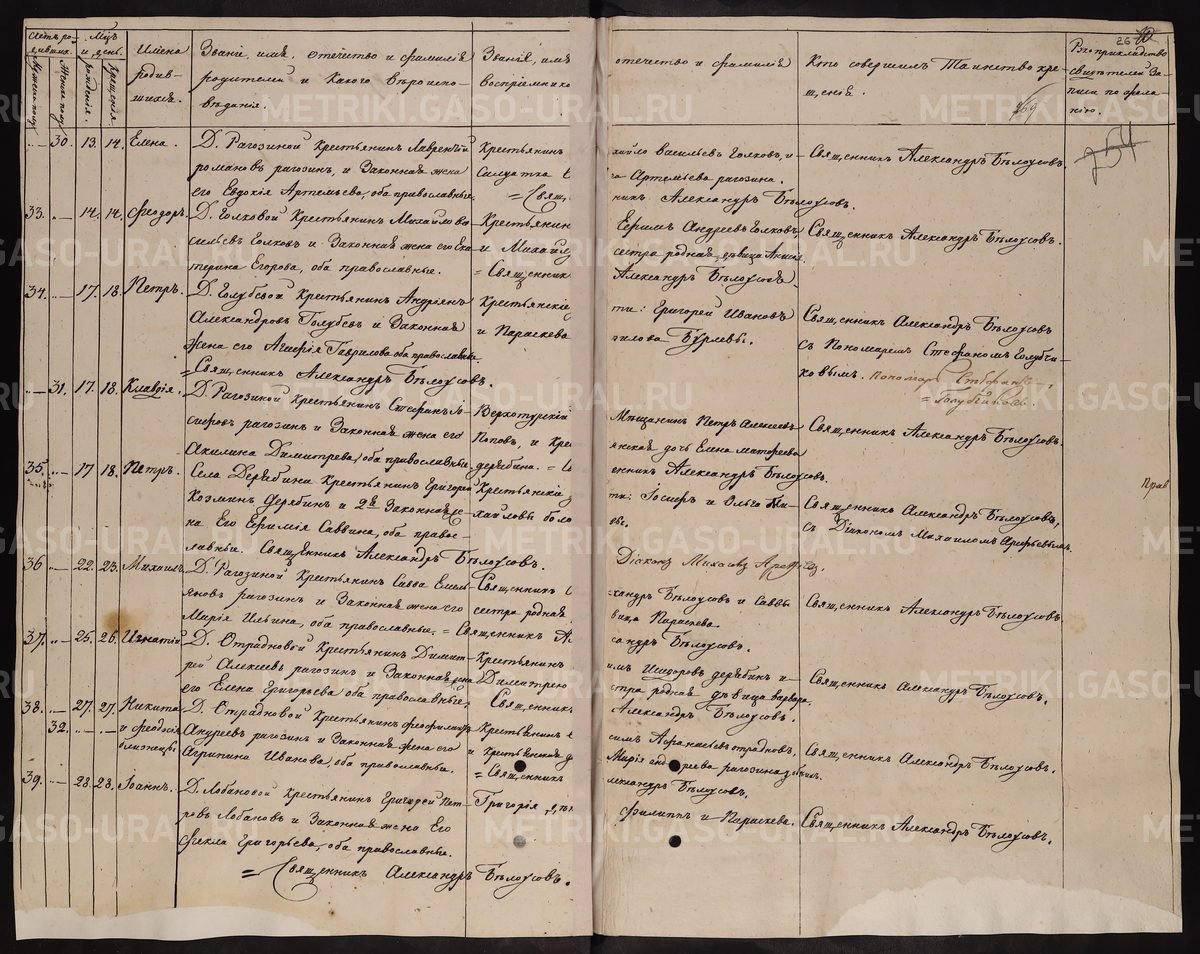 Счетъ ро-
дившихся.
Мужска полу
Женска полу
Мѣс. и день.
рожденія.
крещенія.
Имена
родив-
шихся.
Званіе, имя, отечество и фамилія
родителей и какого вѣроиспо-
вѣданія.
Званіе, имя
воспріемнико
отечество и фамилія
Кто совершилъ таинство кре-
щенія.
Рукоприкладство
свидѣтелей за-
писи по жела-
нію.
26
..— 30. 13. 14. Елена.
Д. Рагозиной Крестьянинъ Лаврентій
романовъ рагозинъ, и законная жена
его Евдокія Артемьева, оба православные.
Крестьянинъ
= Свящ.
хайло Васильевъ Голковъ, и
Артемьева рагозина.
никъ Александръ Бѣлоусовъ.
Священникъ Александръ Бѣлоусовъ
33. ..— 14. 14. Феодоръ.
Д. Голковой Крестьянинъ Михайло Ва-
сильевъ Голковъ и законная жена его Ека
терина Егорова, оба православные.
Крестьянинъ
и Михайл
= Священникъ
Ефимъ Андреевъ Голковъ
сестра родная дѣвица Анисія.
Александръ Бѣлоусовъ.
Священникъ Александръ Бѣлоусовъ.
34. ..— 17. 18. Петръ.
Д. Голубевой Крестьянинъ Андріянъ
Александровъ Голубевъ и законная
жена его Агафія Гаврилова оба православные.
= Священникъ Александръ Бѣлоусовъ.
Крестьянскіе
и Параскева
ти: Григорей Ивановъ
рилова Бурлевы.
Священникъ Александръ Бѣлоусовъ
съ Пономаремъ Стефаномъ Голубчи-
ковымъ. Пономарь Стефанъ
= Голубчиковъ.
..— 31. 17. 18. Клавдія.
Д. Рагозиной Крестьянинъ Стефанъ Іо-
сифовъ рагозинъ и законная жена его
Акилина Димитрева, оба православные.
Верхотурскій
Поповъ, и Кре
дерябина. =
Мѣщанинъ Петръ Алексеевъ
янская дочь Елена матфеева
щенникъ Александръ Бѣлоусовъ.
Священникъ Александръ Бѣлоусовъ.
35. ..— 17 18. Петръ.
Села Дерябина Крестьянинъ Григорей
Козминъ Дерябинъ и 2я законная же-
на его Ефимія Саввина, оба право-
славные. Священникъ Александръ Бѣлоусовъ.
Крестьянскіе
хайловы боло
ти: Іосифъ и Ольга Ми-
вы.
Священникъ Александръ Бѣлоусовъ,
съ Діакономъ Михаиломъ Арефьевымъ.
Прав
36 ..— 22. 23. Михаилъ.
Д. Рагозиной Крестьянинъ Савва Емель
яновъ рагозинъ и законная жена его
Марія Ильина, оба православные. = Священникъ Ал
Священникъ
сестра родная
Діаконъ Михаилъ Арефьевъ.
ксандръ Бѣлоусовъ и Саввы
вица Параскева.
сандръ Бѣлоусовъ.
Священникъ Александръ Бѣлоусовъ
37. ..— 25. 26. Игнатій
Д. Отрадновой Крестьянинъ Димит-
рей Алексеевъ рагозинъ и законная жена
его Елена Григорьева оба православные.
Крестьянинъ
Димитрею
Священникъ
имъ Исидоровъ дерябинъ и
стра родная дѣвица варвара.
Александръ Бѣлоусовъ.
Священникъ Александръ Бѣлоусовъ.
38. ..— 27. 27. Никита
32. ..—..— и Феодосія
близнецы
Д. Отрадновой Крестьянинъ Феофилактъ
Андреевъ рагозинъ и законная жена его
Агрипина Иванова, оба православные.
Крестьянинъ
и крестьянская
= Священникъ
симъ Афанасьевъ отрадновъ,
Марія андреева рагозина
лександръ Бѣлоусовъ.
Священникъ Александръ Бѣлоусовъ.
39. ..— 28. 28. Іоаннъ.
Д. Лобановой Крестьянинъ Григорей Пет-
ровъ Лобановъ и законная жена его
Фекла Григорьева, оба православные.
= Священникъ Александръ Бѣлоусовъ.
Григорія
Филиппъ и Параскева.
Священникъ Александръ Бѣлоусовъ.
METRIKI.GASO-URAL.RU